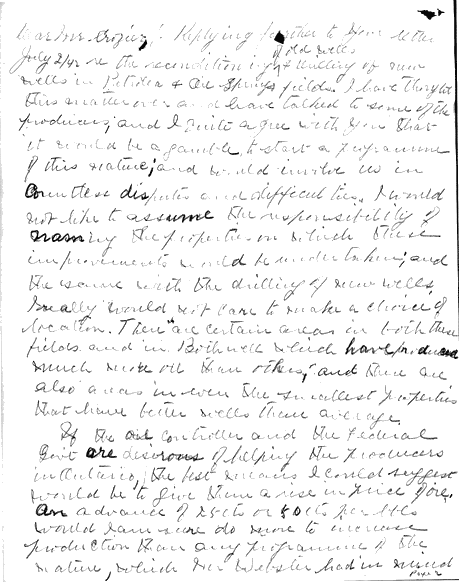 Dear Mr. Crozier: Replying further to your letter
of old wells
July 2/42 re the reconditioning & drilling of new
wells in Petrolea & Oil Springs fields. I have thought
this matter over and have talked to some of the
producers; and I quite agree with you that
it would be a gamble to start a programme
of this nature; and would involve us in
countless disputes and difficulties. I would
not like to assume the responsibility of
naming the properties on which these
improvements would be undertaken; and
the same with the drilling of new wells
really would not care to make a choice of
location. There are certain areas in both these
fields and in Bothwell which have produced
much more oil than others; and there are
also areas in even the smallest properties
that have better wells than average.
If the oil controller and the Federal
Gov't are desirous of helping the producers
in Ontario, the best means I could suggest
would be to give them a rise in price of ore.
An advance of 25cts or 50cts per bbls
would I am sure do more to increase
production than any programme of the
nature, which Mr Webster had in mind